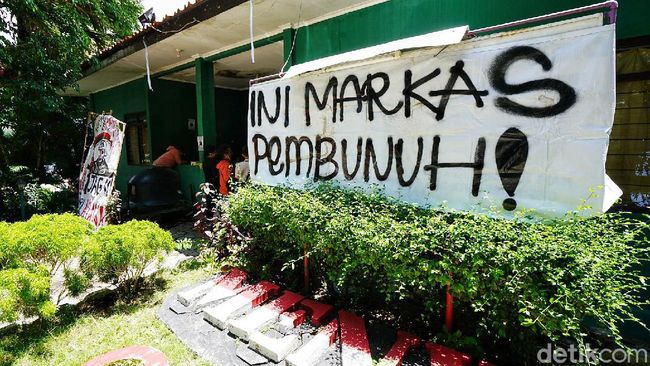 INI MARKAS
PEMBUNUH!
detikcom